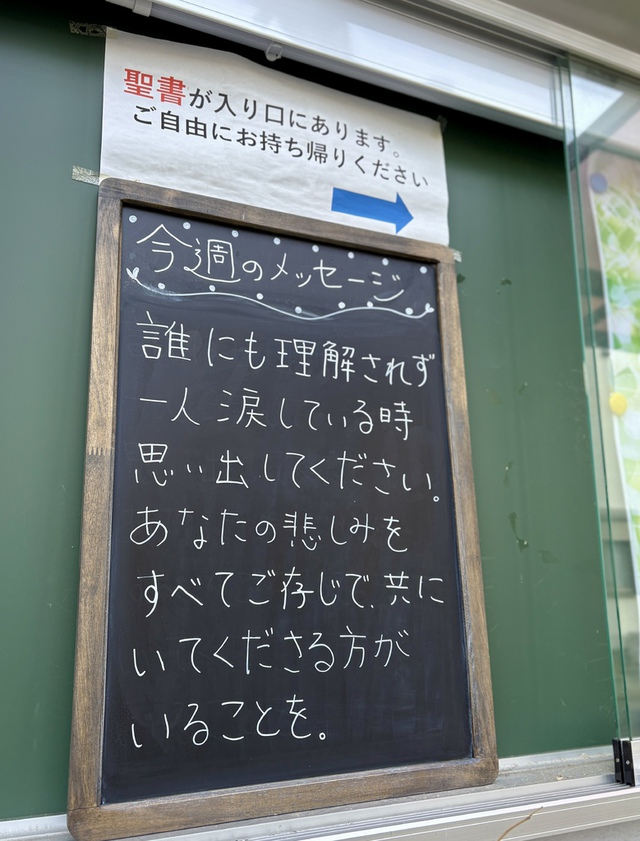 聖書が入り口にあります。
ご自由にお持ち帰りください
今週のメッセージ
誰にも理解されず
一人涙している時
思い出してください。
あなたの悲しみを
すべてご存じで、共に
いてくださる方が
いることを。